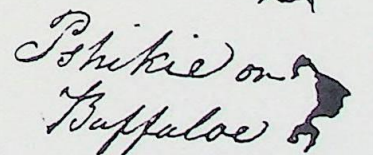 Pshikie on
Buffaloe